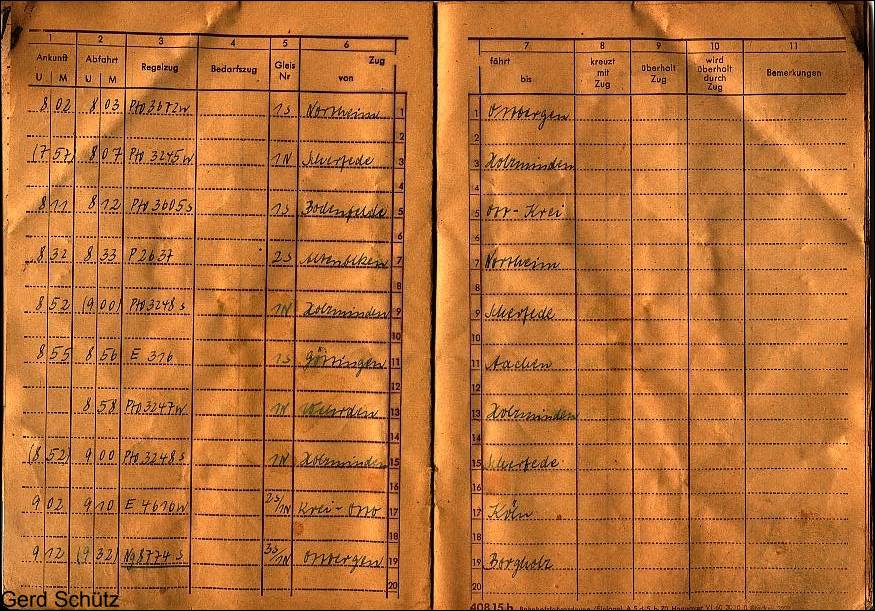 1 2 3 4 5 6 7 8 9 10 11
Ankunft Abfahrt Regelzug Bedarfszug Gleis Nr Zug von fährt bis kreuzt mit Zug überholt Zug wird überholt durch Zug Bemerkungen
U M U M
8 02 8 03 Pto 3672w 1S Northeim 1 1 Ottbergen
2 2
(7 57) 8 07 Pto 3245w 1N Scherfede 3 3 Holzminden
4 4
8 11 8 12 Pto 3605s 1S Bodenfelde 5 5 Ott-Krei
6 6
8 32 8 33 P 2637 2S Altenbeken 7 7 Northeim
8 8
8 52 (9 00) Pto 3248s 1N Holzminden 9 9 Scherfede
10 10
8 55 8 56 E 316 1S Göttingen 11 11 Aachen
12 12
8 58 Pto 3247w 1N Wehrden 13 13 Holzminden
14 14
(8 52) 9 00 Pto 3248s 1N Holzminden 15 15 Scherfede
16 16
9 02 9 10 E 4610w 2S/1N Krei-Otto 17 17 Köln
18 18
9 12 (9 32) Ng 8774 s 3S/1N Ottbergen 19 19 Borgholz
20 20
408 15 b
Gerd Schütz